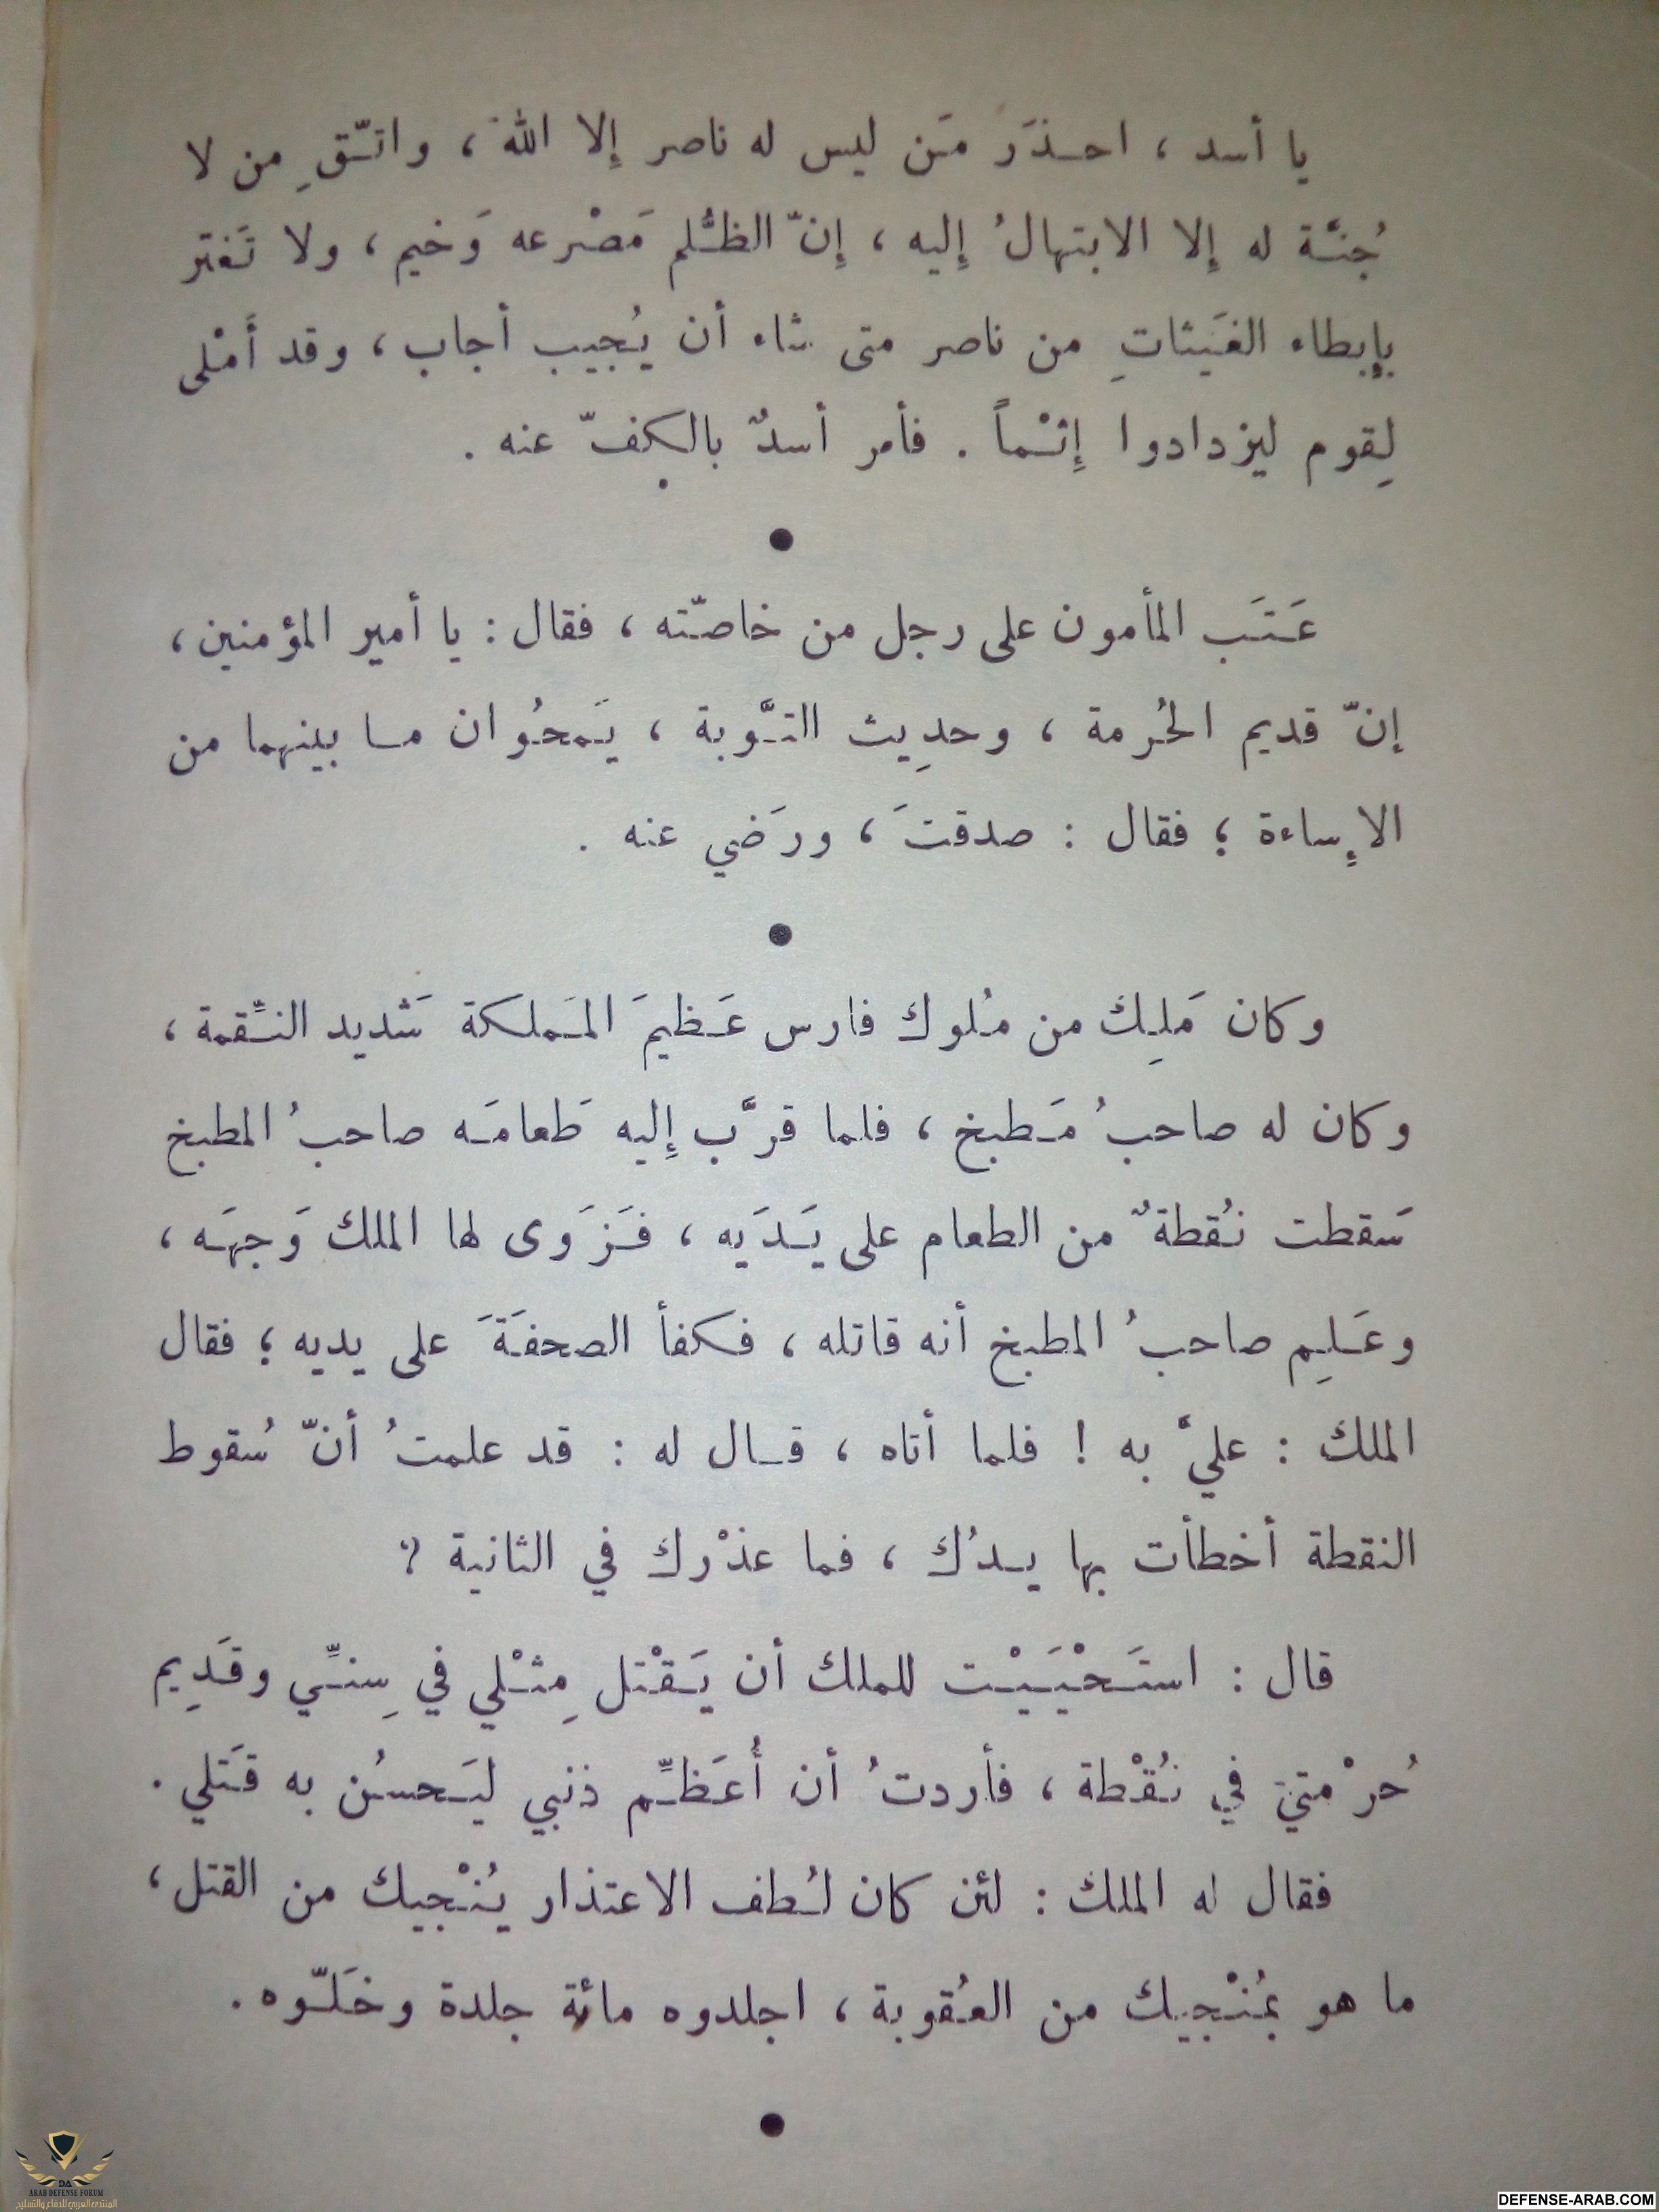 يا أسد ، احذَرَ مَن ليس له ناصر إِلا اللهَ ، واتّقِ من لا
جُنّة له إِلا الابتهالُ إِليه ، إِنّ الظُّلم مَصْرعه وَخيم ، ولا تَغتر
بإِبطاء الغَيثاتِ من ناصر متى شاء أن يُجيب أجاب ، وقد أَمْلى
لِقوم ليزدادوا إِثْماً . فأمر أسدٌ بالكفّ عنه .
●
عَتَب المأمون على رجل من خاصّته ، فقال : يا أمير المؤمنين ،
إنّ قديم الحُرمة ، وحدِيث التَّوبة ، يَمحُوان ما بينهما من
الإِساءة ؛ فقال : صدقتَ ، ورَضي عنه .
●
وكان مَلِك من مُلوك فارس عَظيمَ المَملكة شَديد النِّقمة ،
وكان له صاحبُ مَطبخ ، فلما قرَّب إِليه طَعامَه صاحبُ المطبخ
سَقطت نُقطةٌ من الطعام على يَدَيه ، فَزَوى لها الملك وَجهَه ،
وعَلِم صاحبُ المطبخ أنه قاتله ، فكفأ الصحفَةَ على يديه ؛ فقال
الملك : عليَّ به ! فلما أتاه ، قال له : قد علمتُ أنّ سُقوط
النقطة أخطأت بها يدُك ، فما عذْرك في الثانية ؟
قال : استَحْيَيْت للملك أن يَقْتل مِثْلي في سِنِّي وقَدِيم
حُرْمتي في نُقْطة ، فأردتُ أن أُعَظِّم ذنبي ليَحسُن به قَتلي .
فقال له الملك : لئن كان لُطف الاعتذار يُنْجيك من القتل ،
ما هو بمُنْجيك من العُقوبة ، اجلدوه مائة جلدة وخَلّوه .
●
ARAB DEFENSE FORUM
المنتدى العربي للدفاع والتسليح
DEFENSE-ARAB.COM